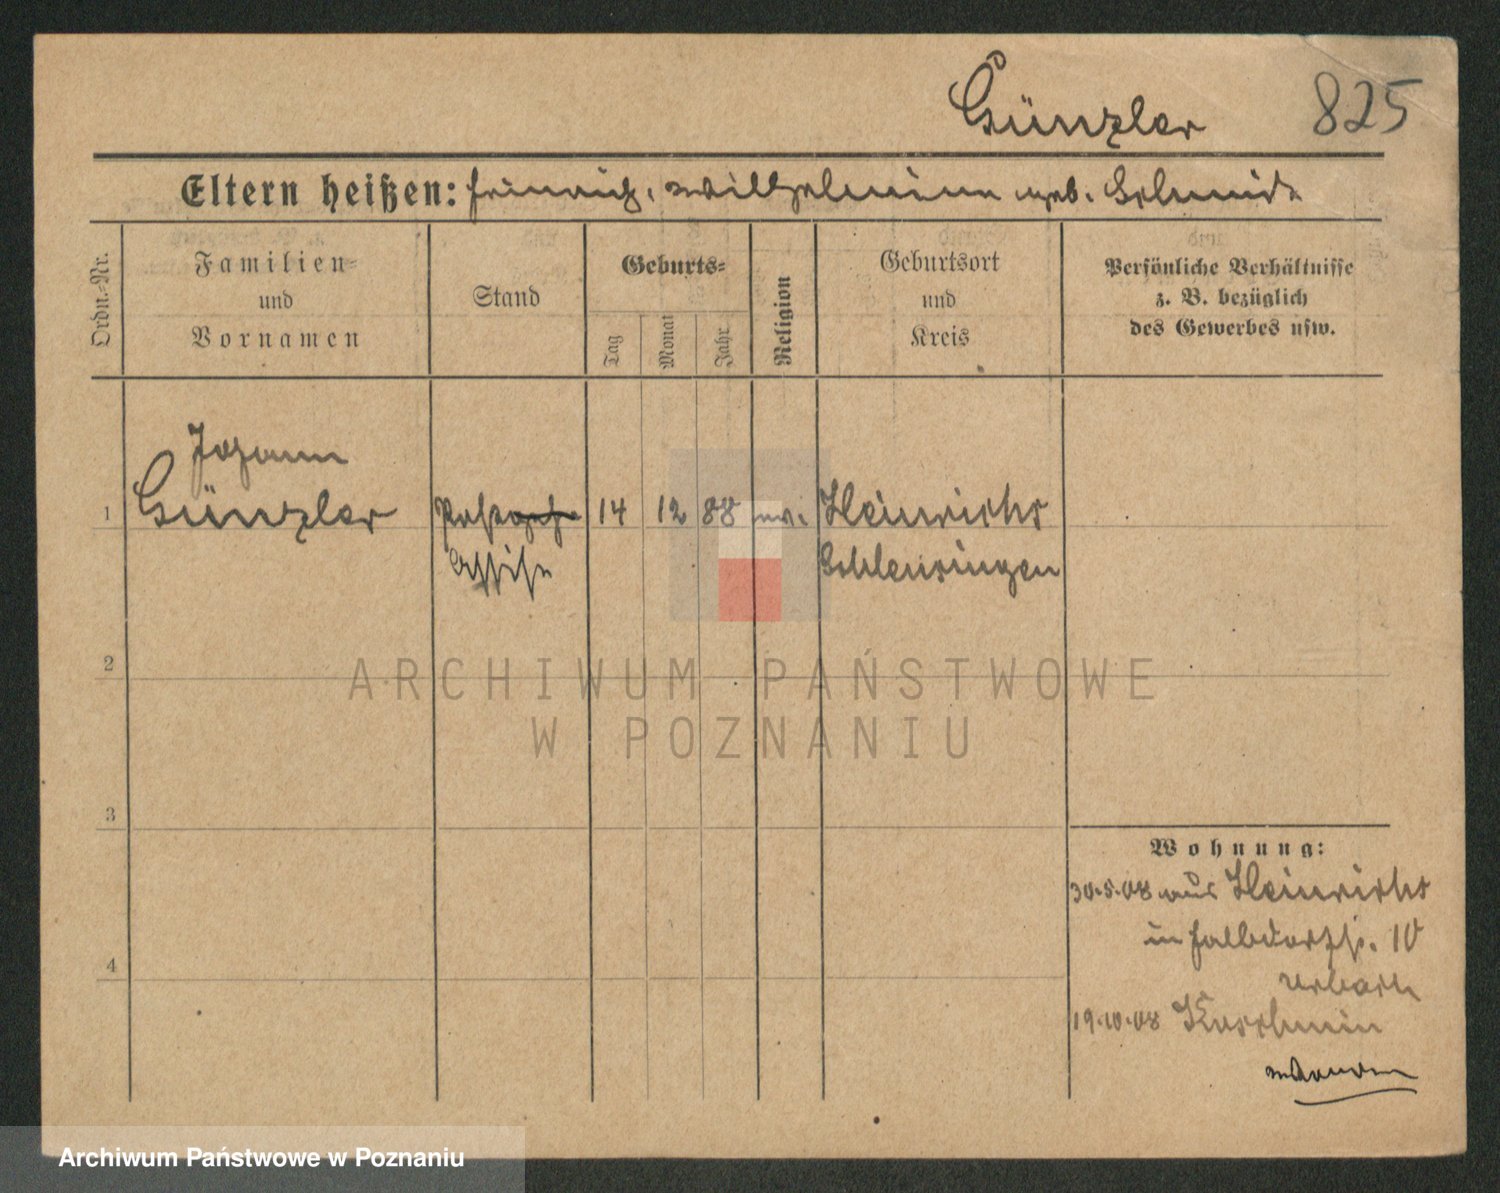 Günzler 825
Eltern heißen: Heinrich, Wilhelmine geb. Schmidt
Ordn.-Nr.
Familien-
und
Vornamen
Stand
Geburts-
Tag
Monat
Jahr
Religion
Geburtsort
und
Kreis
Persönliche Verhältnisse
z. B. bezüglich
des Gewerbes usw.
Johann
1 Günzler 14 12 88 ev. Heinrichs
Schleusingen
2
3
4
Wohnung:
30.5.08 aus Heinrichs
in Halbdorfstr. 10
19.10.08 Koschmin
ARCHIWUM PAŃSTWOWE
W POZNANIU
Archiwum Państwowe w Poznaniu